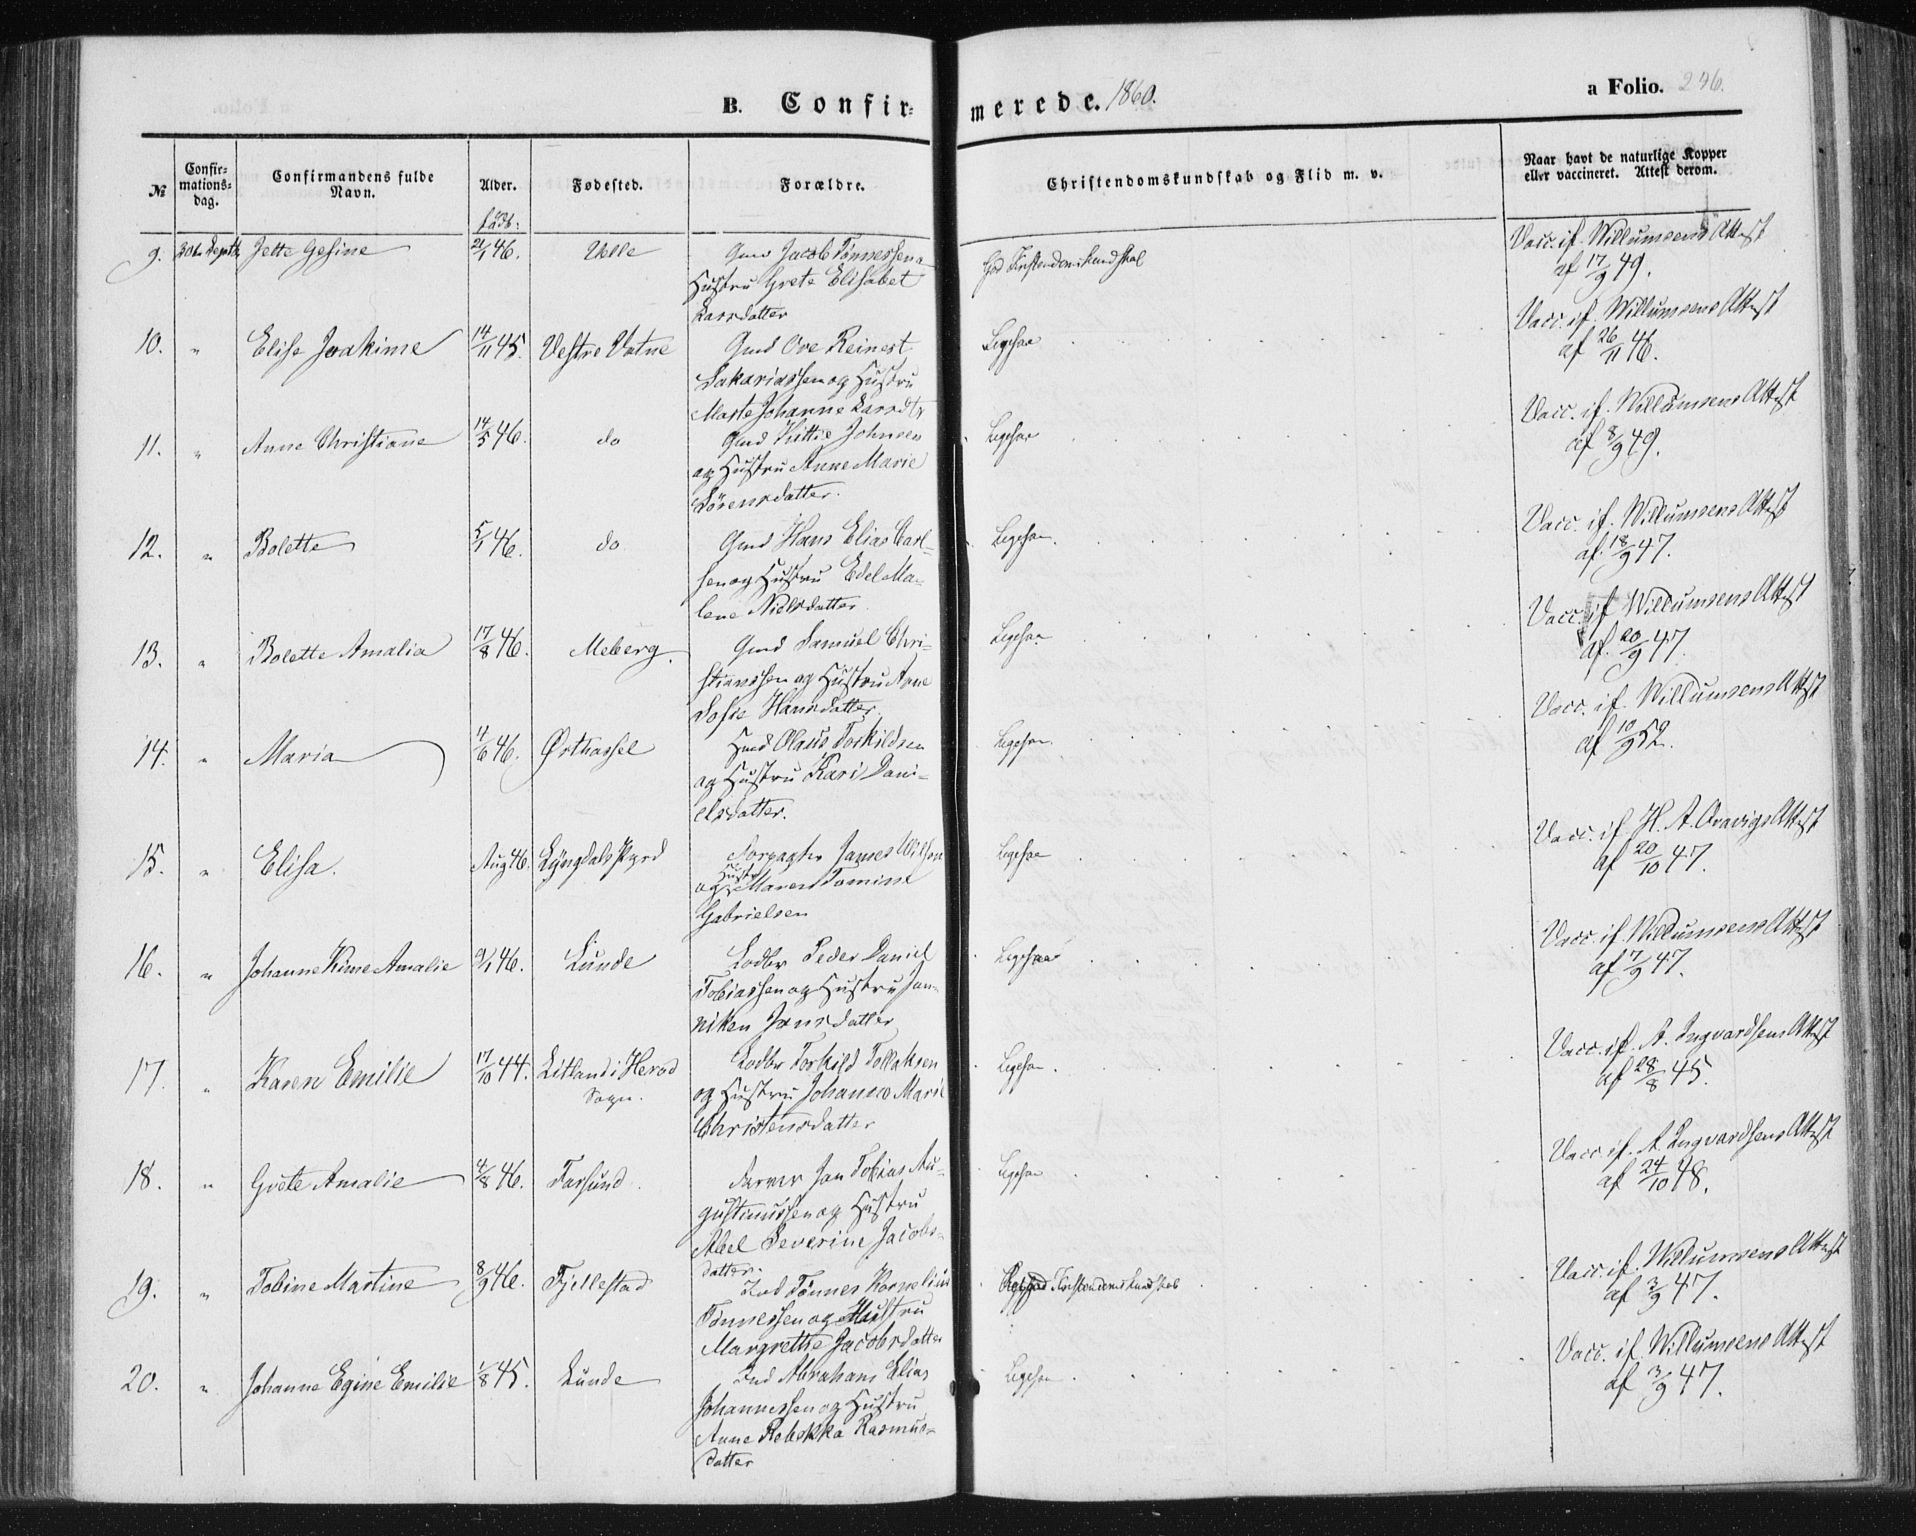 B. Confir-
merede. 1860.
a Folio. 246.
№
Confir-
mations-
dag.
Confirmandens fulde
Navn.
Alder.
Fødested.
Forældre.
Christendomskundskab og Flid m. v.
Naar havt de naturlige Kopper
eller vaccineret. Attest derom.
født:
9. 30te Septb. Jette Gesine 21/1 46. Gmd Jacob Tønnessen og
Hustru Grete Elisabet
Larsdatter
God Kristendomskundskab
Vacc. if. Willumsens Attest
af 17/9 49.
10. " Elise Joakime 14/11 45. Vestre Vatne Gmd Ove Reinert
Sakariassen og Hustru
Marte Johanne Larsdtr
Ligesaa
Vacc. if. Willumsens Attest
af 26/11 46.
11. " Anne Christiane 14/5 46. do Gmd Kittil Johnsen
og Hustru Anne Marie
Sørensdatter.
Ligesaa
Vacc. if. Willumsens Attest
af 8/9 49.
12. " Bolette 5/1 46. do Gmd Hans Elias Carl-
sen og Hustru Edel Ma-
lene Nielsdatter.
Ligesaa.
Vacc. if. Willumsens Attest
af. 18/9 47.
13. " Bolette Amalia 17/8 46. Meberg. Gmd Samuel Chri-
stianssen og Hustru Anne
Sofie Hansdatter.
Ligesaa
Vacc. if Willumsens Attest
af. 20/9 47.
14. " Maria 4/6 46. Østhassel Hmd Olaus Torkildsen
og Hustru Kari Dani-
elsdatter.
Ligesaa.
Vacc. if. Willumsens Attest
af 10/9 52.
15. " Elisa. Aug 46. Lyngdals Pgrd Forpagter James Wilson
og Hustr Maren Tomine
Gabrielsen
Ligesaa
Vacc. if H. A. Aravigs Attest
af 20/10 47.
16. " Johanne Kime Amalie 9/1 46. Lunde Lodbr Peder Daniel
Tobiassen og Hustru Jan-
niken Jansdatter
Ligesaa
Vacc. if. Willumsens Attest
af 7/9 47.
17. " Karen Emilie 17/10 44. Litland i Herad
Sogn. Lodbr Torkild Tollaksen
og Hustru Johanne Marie
Christensdatter
Ligesaa.
Vacc. if. A. Ingvardsens Attest
af 28/8 45.
18. " Grete Amalie 4/8 46. Farsund. Farver Jan Tobias Au-
gustinussen og Hustru
Abel Severine Jacobs-
datter.
Ligesaa
Vacc. if. A. Ingvardsens Attest
af 24/10 48.
19. " Tobine Martine 8/9 46. Fjellestad Ind Tønnes Kornelius
Tønnessen og Hustru
Margrethe Jacobsdatter
Kristendomskundskab
Vacc. if. Willumsens Attest
af 3/9 47.
20. " Johanne Egine Emilie 1/8 45. Lunde Ind Abraham Elias
Johannessen og Hustru
Anne Rebekka Rasmus-
datter
Ligesaa
Vacc. if. Willumsens Attest
af 3/9 47.